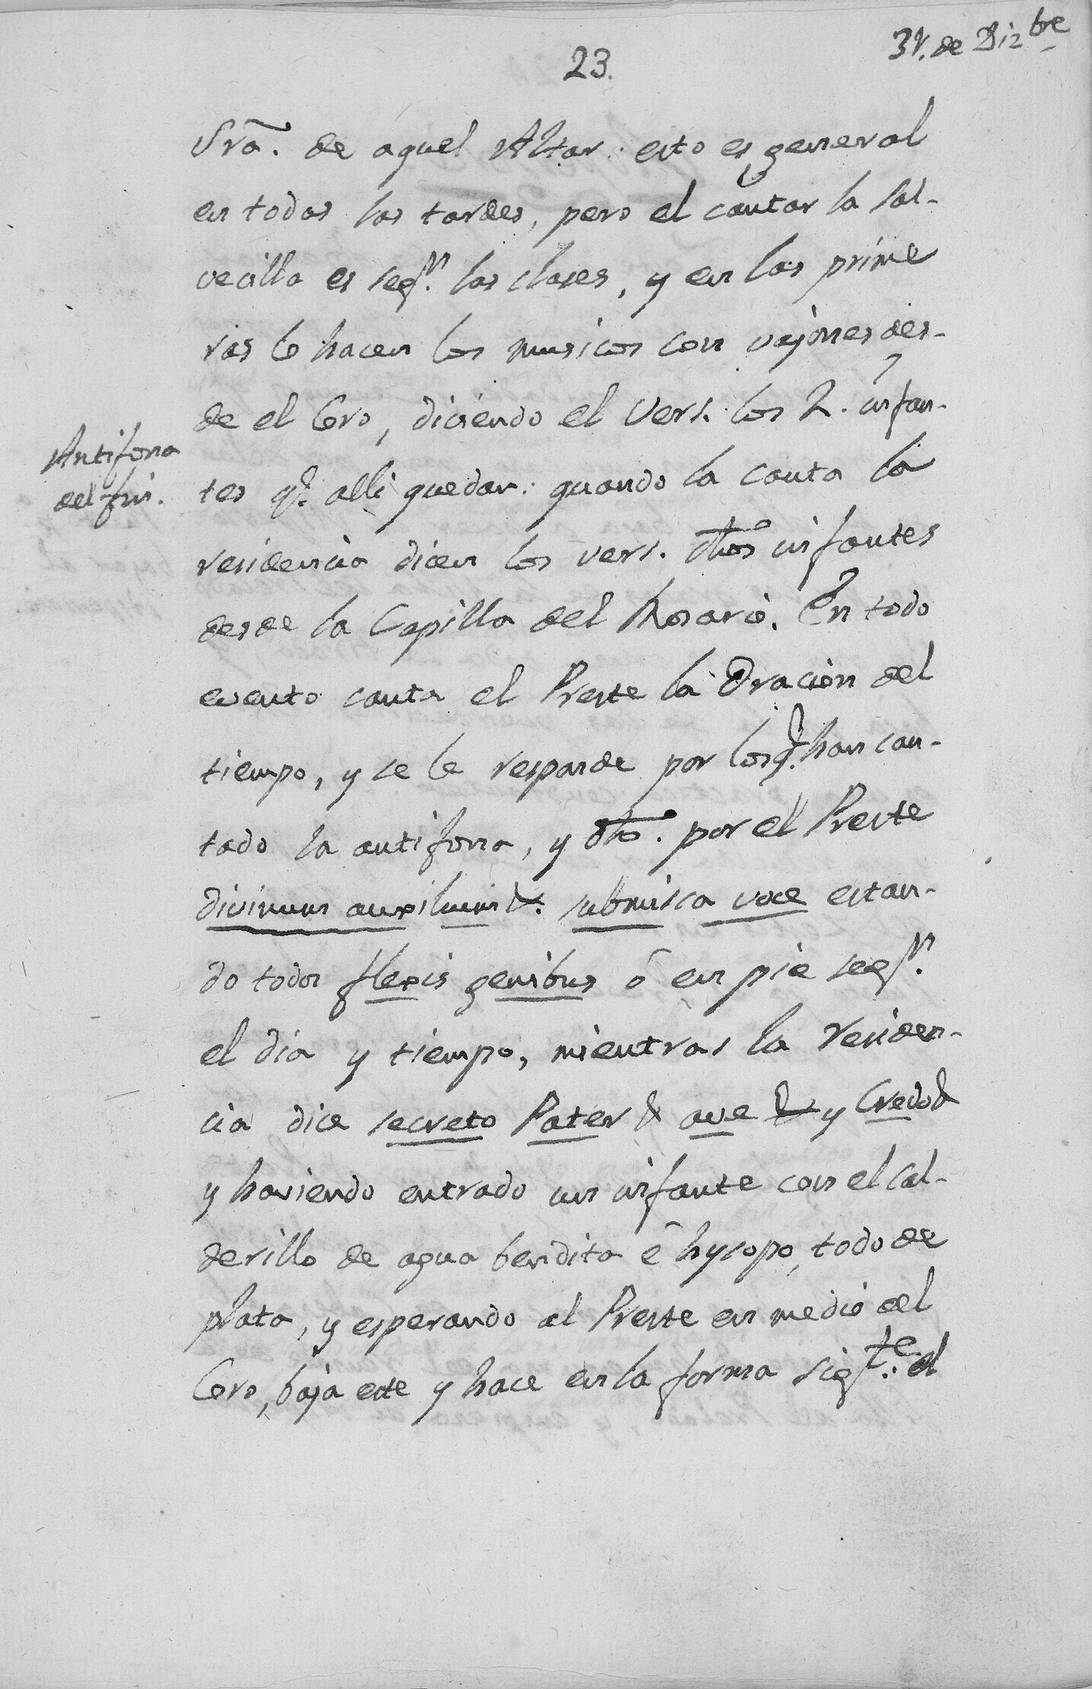 23.
31. de Diz.bre
Sra. de aquel Altar: esto es general
en todas las tardes, pero el cantar la Sal-
vecilla es seg.n las clases, y en las prime
ras lo hacen los musicos con vajones des-
de el Coro, diciendo el Vers. los 2. infan-
Antifona
del fin.
tes q.e alli quedan: quando la canta la
residencia dicen los vers. dhos infantes
desde la Capilla del Rosario. En todo
evento canta el Preste la Oracion del
tiempo, y se le responde por los q.e han can-
tado la antifona, y dho. por el Preste
divinum auxilium &. submissa voce estan-
do todos flexis genibus ó en pie seg.n
el dia y tiempo, mientras la residen-
cia dice secreto Pater & ave & y Credo &
y haviendo entrado un infante con el cal-
derillo de agua bendita é hysopo, todo de
plata, y esperando al Preste en medio del
Coro, baja este y hace en la forma sig.te: el